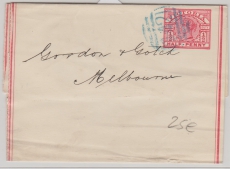 VICTORIA
HALF-PENNY
Gordon & Gotch
Melbourne
25€